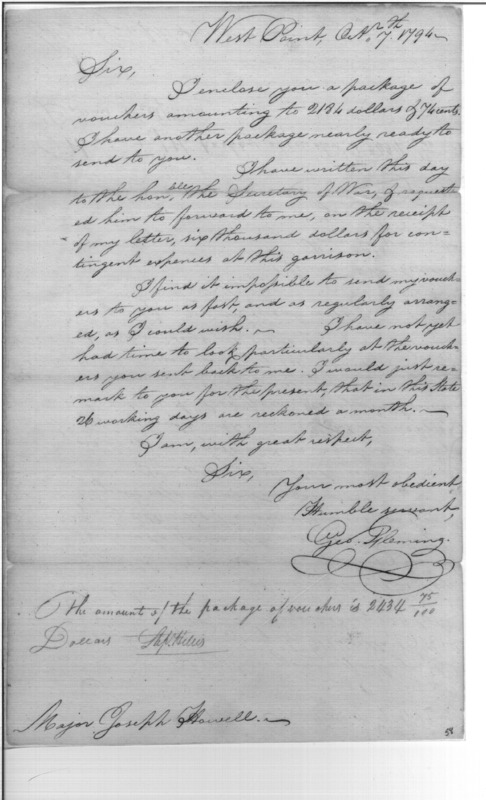 West Point, Oct. 7th 1794
Sir,
I enclose you a package of
vouchers amounting to 2184 dollars & 74 cents.
I have another package nearly ready to
send to you.
I have written this day
to the hon.ble the Secretary of War, & request-
ed him to forward to me, on the receipt
of my letter, six thousand dollars for con-
tingent expences at this garrison.
I find it impossible to send my vouch-
ers to you as fast, and as regularly arrang-
ed, as I could wish. I have not yet
had time to look particularly at the vouch-
ers you sent back to me. I would just re-
mark to you for the present, that in this State
26 working days are reckoned a month.
I am, with great respect,
Sir,
Your most obedient
Humble servant,
Geo. Fleming.
The amount of the package of vouchers is 2434 75/100
Dollars
Major Joseph Howell.
58